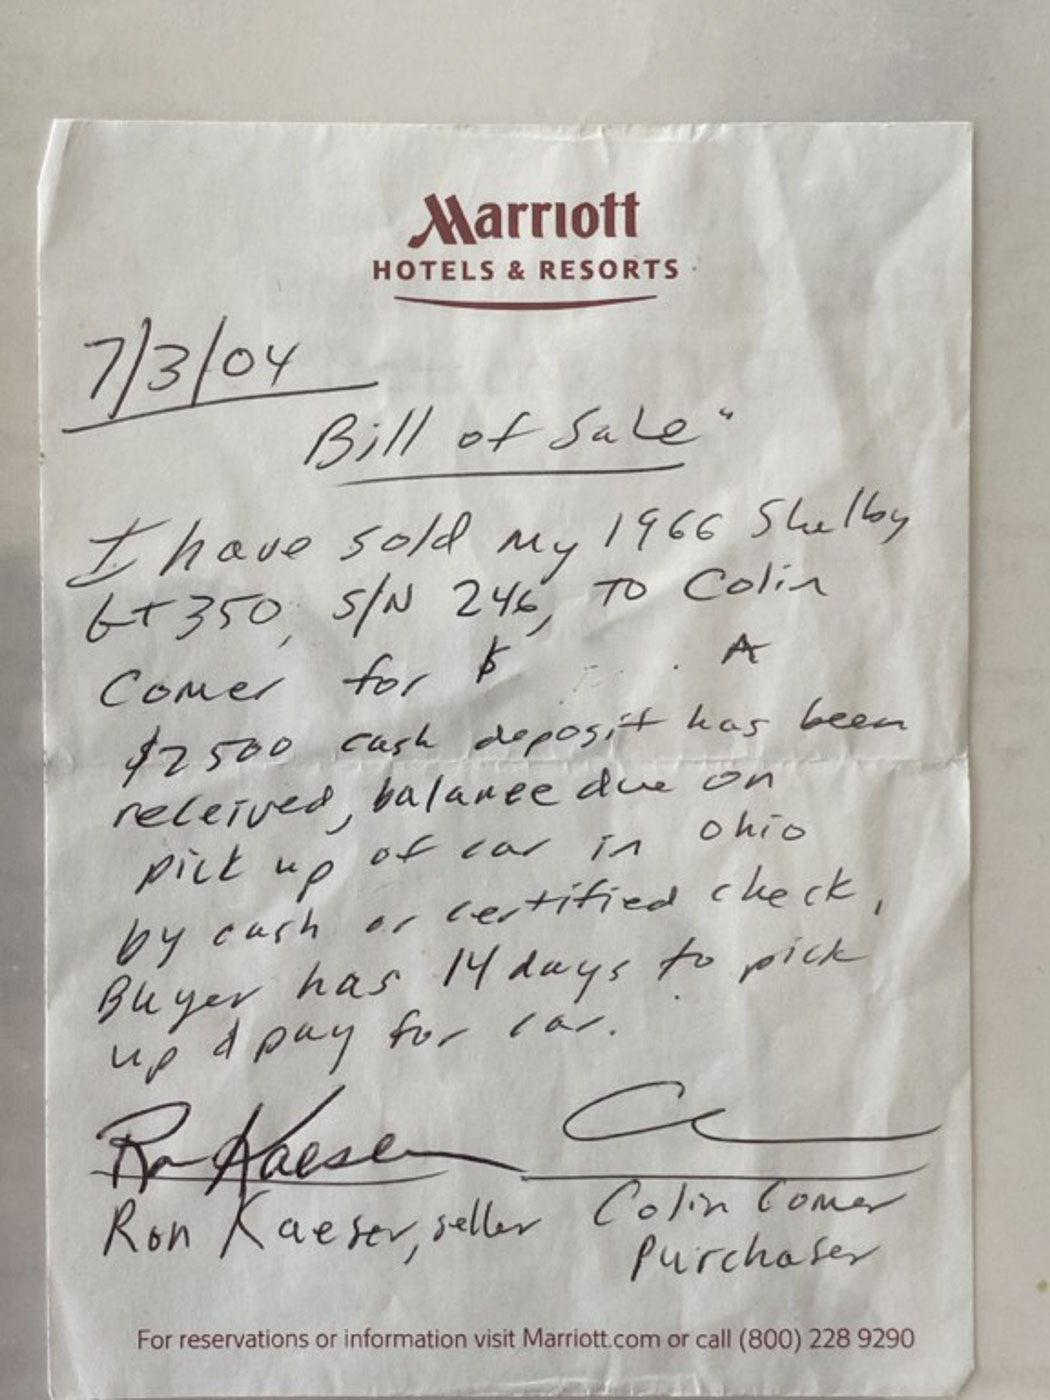 Marriott
HOTELS & RESORTS
7/3/04
Bill of Sale"
I have sold my 1966 Shelby
Gt 350, S/N 246, to Colin
Comer for $ A
$2500 cash deposit has been
received, balance due on
pick up of car in ohio
by cash or certified check,
Buyer has 14 days to pick
up & pay for car.
Ron Kaeser
Ron Kaeser, seller Colin Comer
Purchaser
For reservations or information visit Marriott.com or call (800) 228 9290